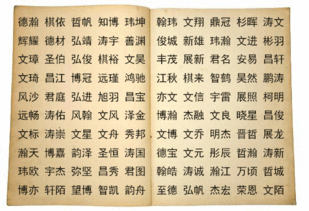 德瀚 棋侬 哲帆 知博 玮坤
辉耀 德材 弘靖 涛宇 善渊
文璋 圣伯 弘俊 棋裕 文昊
文琦 昌江 博冠 远瑾 鸿驰
风沙 君庭 弘进 旭羽 昌宝
远畅 涛佑 风翰 文风 泽金
文标 涛崇 文星 文舟 秀邦
瀚天 博嘉 韵泽 圣恒 涛国
玮欧 宇杰 弥坚 昌秀 君图
博亦 轩陌 望博 智凯 韵舟
翰玮 文翔 鼎冠 杉晖 涛文
俊城 新雄 玮瀚 文进 彬羽
丰茂 展新 君名 安易 昌轩
江秋 棋来 智鹤 昊然 鹏涛
亦文 文信 宇雷 展照 柯明
博瀚 杰融 文良 晓星 昌俊
博文 文乔 明杰 晋哲 展龙
德宝 文元 彤辰 哲瀚 新涛
翰皓 涛诚 瀚江 万顷 哲城
至德 弘帆 杰宏 荣恩 文陌